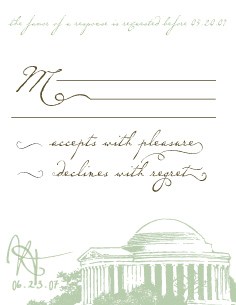 the favor of a response is requested before 05.20.07
M
accepts with pleasure
declines with regret
06.23.07